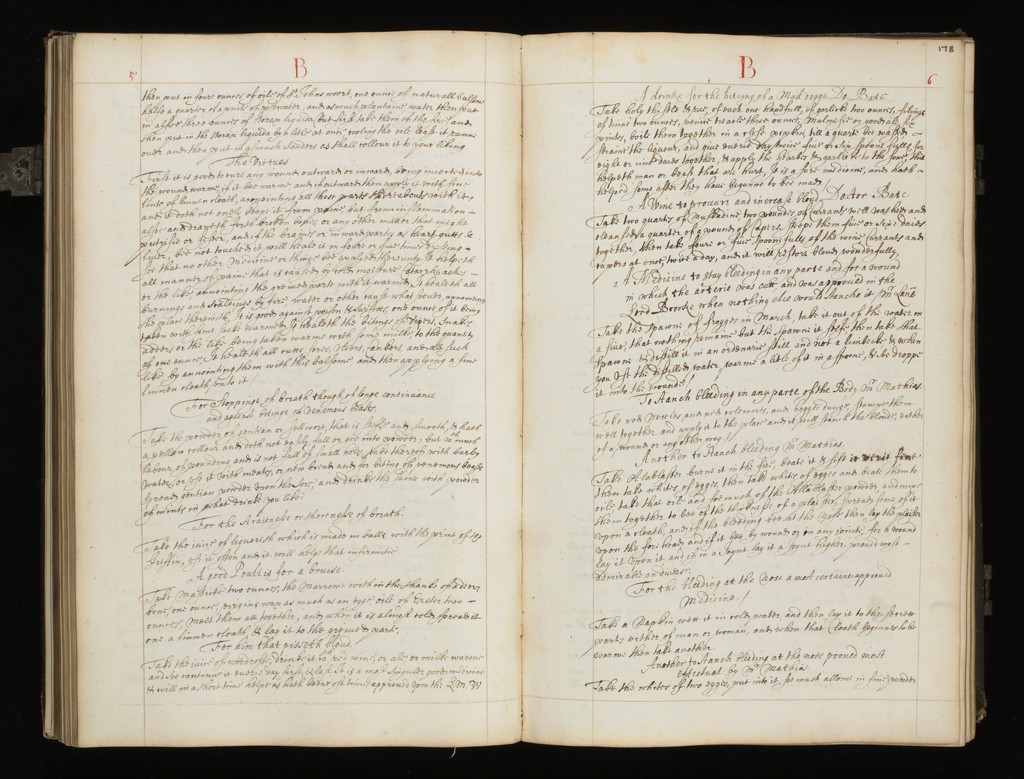 5
B
then put in foure ounces of oile of St Johns woort, one ounce of naturall balsom
halfe a quarter of a pinte of rosewater, and as much plantaine water then put
in alsoe three ounces of Storax liquida, but first take them of the fier, and
then put in the Storax liquida by a litle at once cooling the oile least it runne
over and then put in soe much Sanders as shall collour it to your liking
The Virtues
First it is good to cure any wound outward or inward, being inserted into
the wound warme, if it bee warme, and if outward then apply it with fine
lint or linnen cloath, annointing all those parts thereabouts with it,
and it doth not onely keepe it from paine but from inflammation
alsoe and draweth forth broken bones or any other matter that might
putrifie or fester, and if the braines or inward parts as heart gutts &
liver, bee not touched it will heale it in foure or five times dressing
soe that no other Medicine or thing bee applyed thereunto. It helpeth
all manner of paine that is caused of cold moisture,
or the like annointing the greived parts with it warme. It healeth all
burnings and scaldings by fier, water or other cause what soever annointing
the place therewith. It is good against poison & surfetts, one ounce of it being
taken with some sack warmed. It healeth the bitings of Vipers, Snakes
adders or the like being taken warme with some milke to the quantity
of one ounce. It healeth all cutts sores, Ulcers, cankers, and all such
like by annointing them with this balsome and then applying a fine
linnen cloath unto it /
For Stoppinge of breath though of longe continuance
and against bitinge of Venemous beasts.
Take the powder of Gentian or fellwort, that is stiffe and smooth, & hath
a yellow collour and doth not easily fall or goe into powder, but is much
labour of pounding and is not full of small holes, take thereof with barly
water, or use it with meate, or new bread and for biting of venemous beasts
spread gentian powder upon the sore, and drinke the same with powder
of mints in what drinke you like.
For the straitness or shortness of breath.
Take the iuice of liquorish which is made in balls with the print of the
Griffin, use it often and it will helpe that infirmitie
A good Poultis for a bruise.
Take Malletts two ounces, the Marrow within the shanke of a deers
bone, one ounce, virgins wax as much as an egge, oile of Exeter two
ounces, melt them all together, and when it is almost cold, spread it
one a linnen cloath, & lay it to the greived part.
For him that pisseth bloud.
Take the iuice of woodrose, drinke it with red wine, or ale, or milke warme
and soe continue it everie day first & last it is a most singuler good medicine
& will in a short time helpe as hath beene oft times approved upon the L. M. W
178
6
B
A drinke for the biteing of a Mad dogge Do: Bate
Take holy thistle & rue, of each one handfull, of garlicke two ounces, filings
of tinne two ounces, venice treacle three ounces, Malmesie or good ale six
pintes, boile them together in a close pewter pot, till a quart bee wasted
straine the liquour, and give everie day twice five or six spoonefulls for
eight or nine daies together, & apply the hearbs & garlicke to the sore, this
helpeth man or beast that are hurt. It is a sure medicine, and hath
helped some after they have begunne to bee mad.
A Wine to procure and increase bloud, Doctor Bate.
Take two quarts of Muskadine, two pounds of currants well washed and
cleansed, a quarter of a pound of Capers, steepe them five or seven daies
together, then take foure or five spoonefulls of the wine, currants and
capers at once, twice a day, and it will restore bloud wonderfully,
A Medicine to stay bleeding in any parte and for a wound
in which the arterie was cutt and was approved in the
Lord Brooke when nothing else would stanche it Mrs Cant
Take the spawni of frogges in March, take it out of the water in
a sive, that nothing remaine but the spawni it selfe then take that
spawni & distill it in an ordinarie still and not a limbecke & when
you use the distilled water, warme a litle of it in a spoone, & soe droppe
it into the wounds /
To stanch bleeding in any parte of the Body Mrs Mathias.
Take red Nettles and red colworts, and hogges dunge, stampe them
well together, and apply it to the place and it will stanch the bloud, either
of a wound or any other way /
Another to stanch bleeding Mrs Mathias.
Take Allablaster burne it in the fire, beate it & sift it verie fine
then take whites of egges, then take whits of egges and beate them to
oile, take that oile and soe much of the Allablaster powder as
them together to bee of the thicknesse of a plaister, spread some of it
upon a cloath, and if the bleeding bee at the Nose then lay the plaister
upon the forehead, and if it bee by wounds or any joint, for a wound
lay it upon it and if in a joynt lay it a joynt higher, proved most
admirable on divers.
For the bleeding at the Nose a most certaine approved
Medicine /
Take a Napkin wett it in cold water and then lay it to the secret
parts either of man or woman, and when that cloath beginnes to be
warme then take another.
Another to stanch bleeding at the nose proved most
effectual by Mrs Mathias
Take the whites of two egges, put into it, soe much allome in fine powder